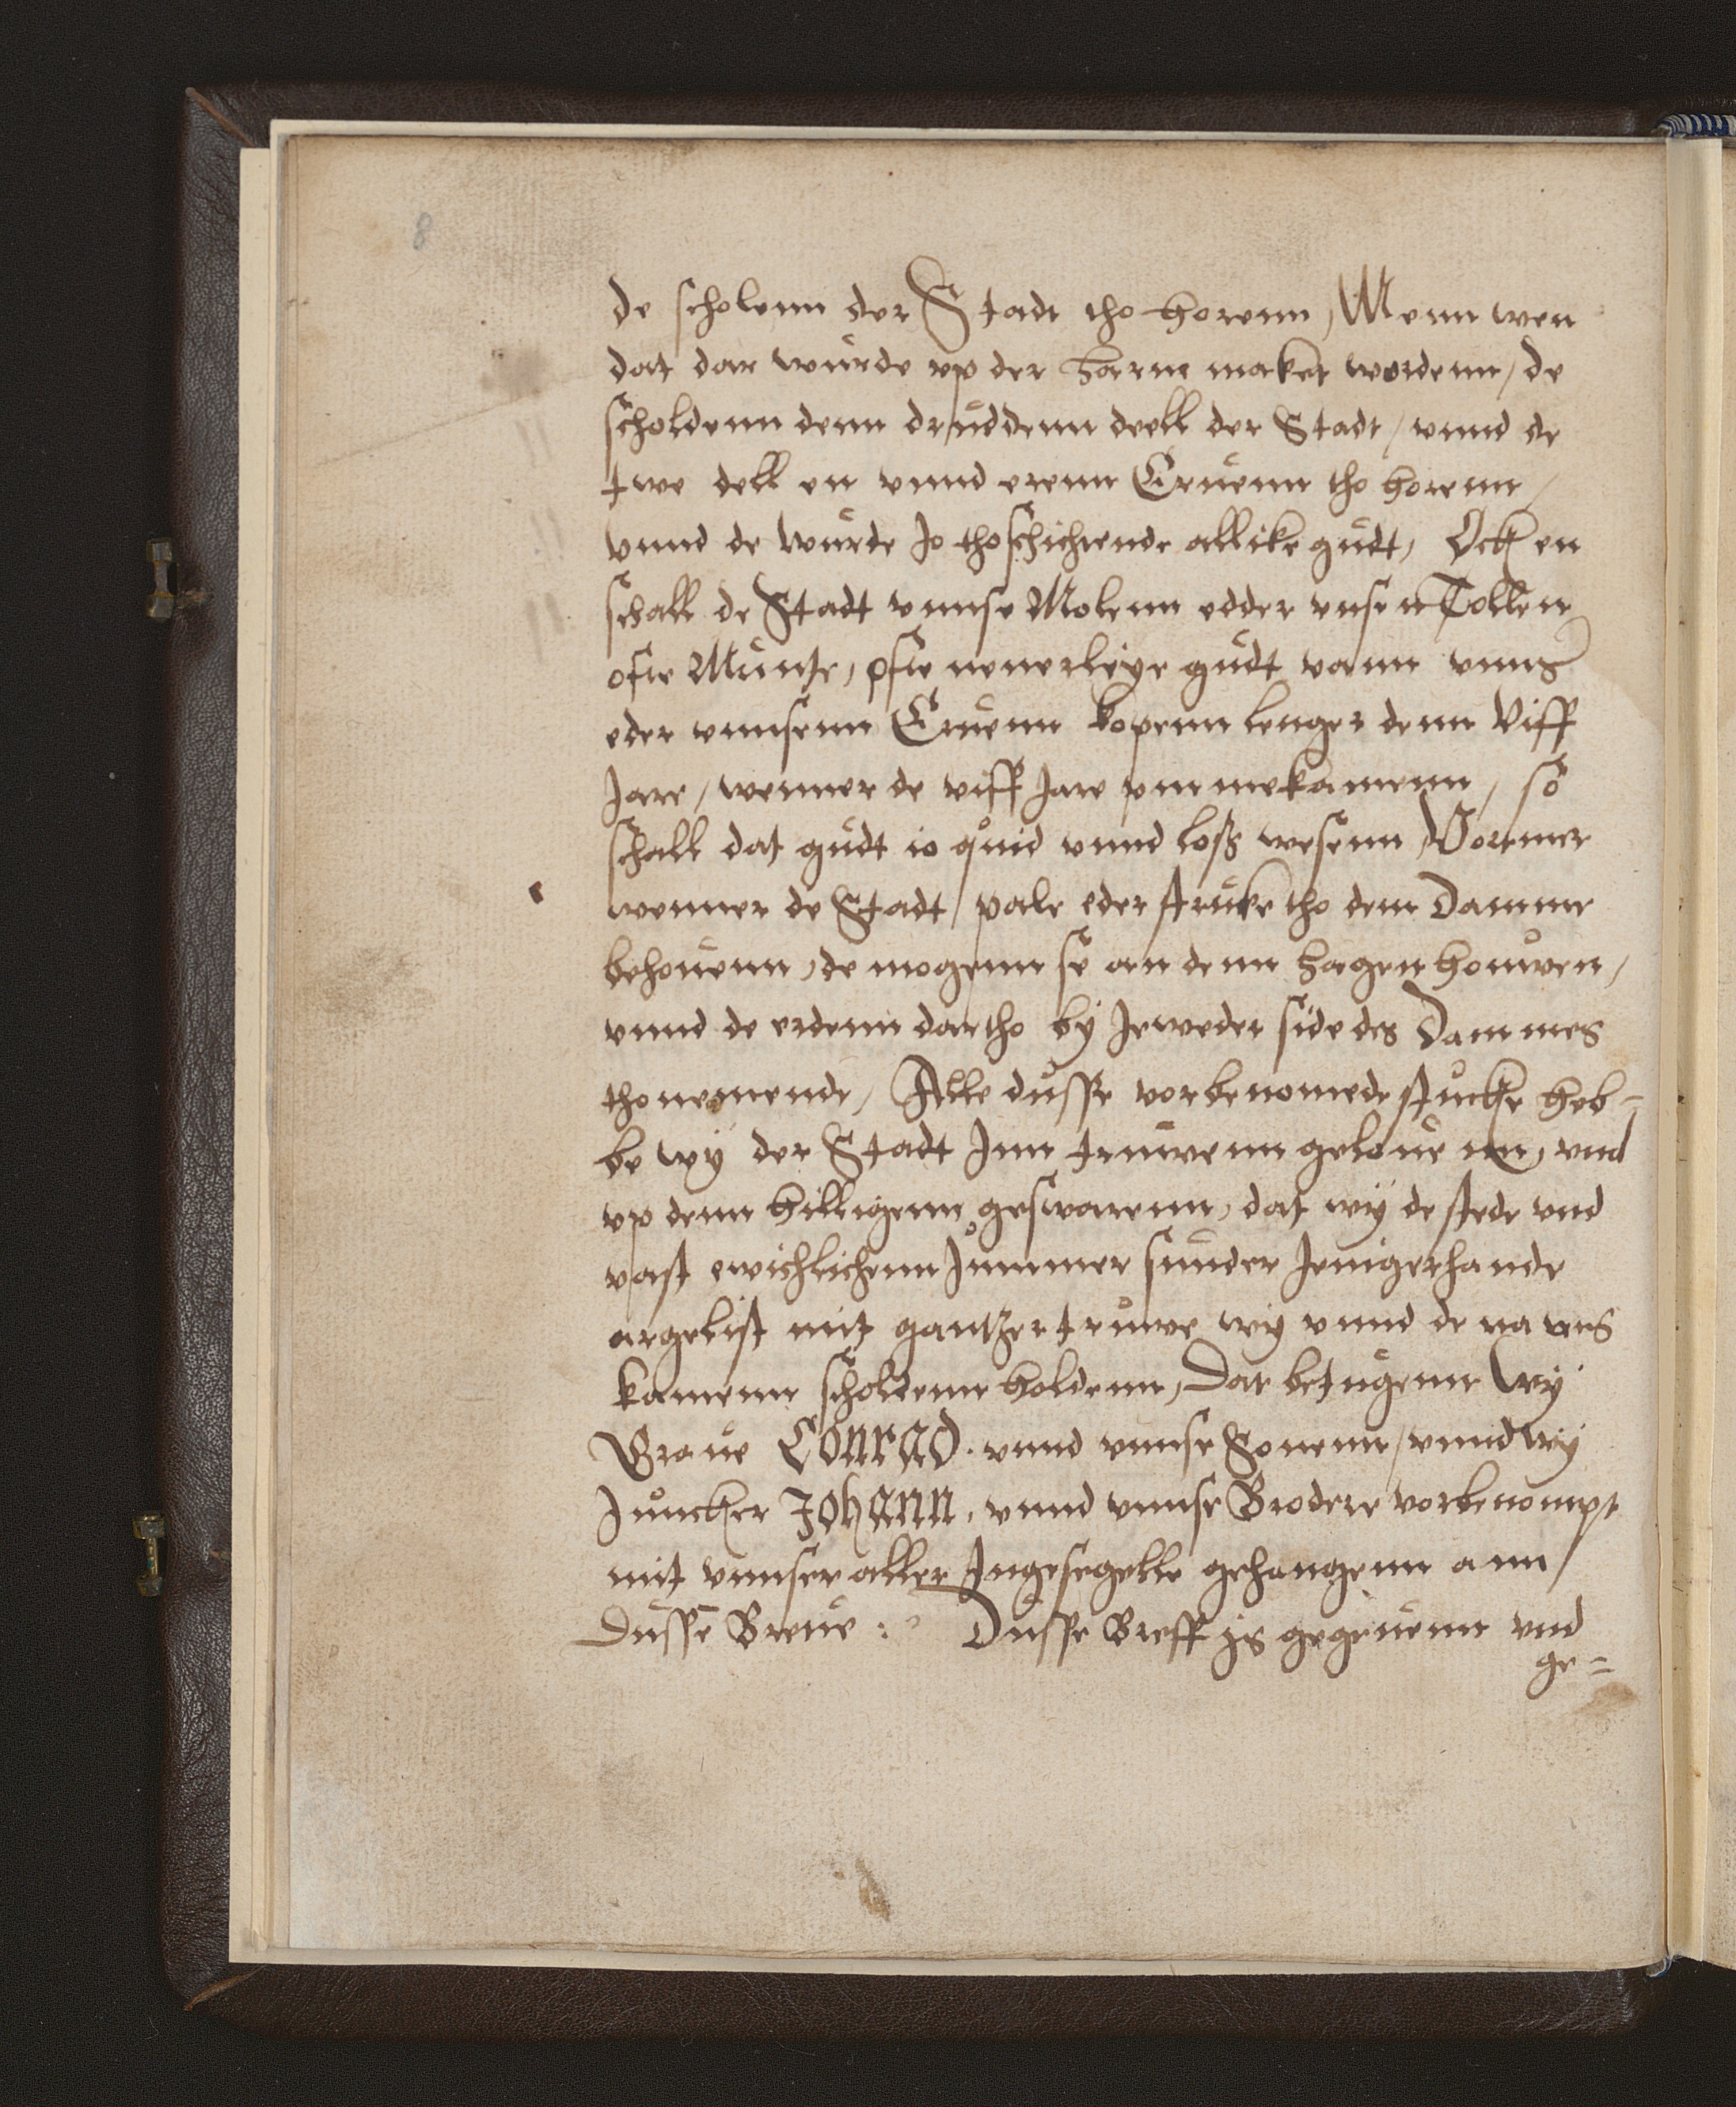 8
de scholenn der Stadt tho horenn, Wenn wen
dat dar wurde vp der Harne maket wordenn, de
scholdenn denn druddenn deell der Stadt, vnnd de
twe dell en vnnd erenn Eruenn tho horenn,
vnnd de wurde Jo thoschichtende allike gudt, Ock en
schall de Stadt vnnse Molenn edder vnsen Tollen
ofte Munte, ofte nenerleye gudt vann vnns
eder vnnsenn Eruenn kopenn lenger denn Viff
Jare, wenner de viff Jare vmmekamenn, so
schall dat gudt io quid vnnd loß wesenn, Vortmer
wenner de Stadt pale eder struke tho dem Damme
behouenn, de mogenn se an denn Hagen houwen,
vnnd de erdenn dartho by Jeweder side des Dammes
thonemende, Alle dusse vorbenomede stucke heb=
be wy der Stadt Jnn truwenn geloue nn, vnd
vp denn hilligenn geswarenn, dat wy de stede vnd
vast ewichlichenn Jummer sunder Jenigerhande
argelist mit gantzer truwe wy vnnd de na vns
kamenn scholdenn holdenn, Dat betugenn Wy
Graue Conrad. vnnd vnnse Sonenn, vnnd Wy
Juncker Johann. vnnd vnnse Brodere vorbenompt
mit vnnser aller Jngesegelle gehangenn ann
Dusse Breue: Dusse Breff js gegeuenn vnd
ge=